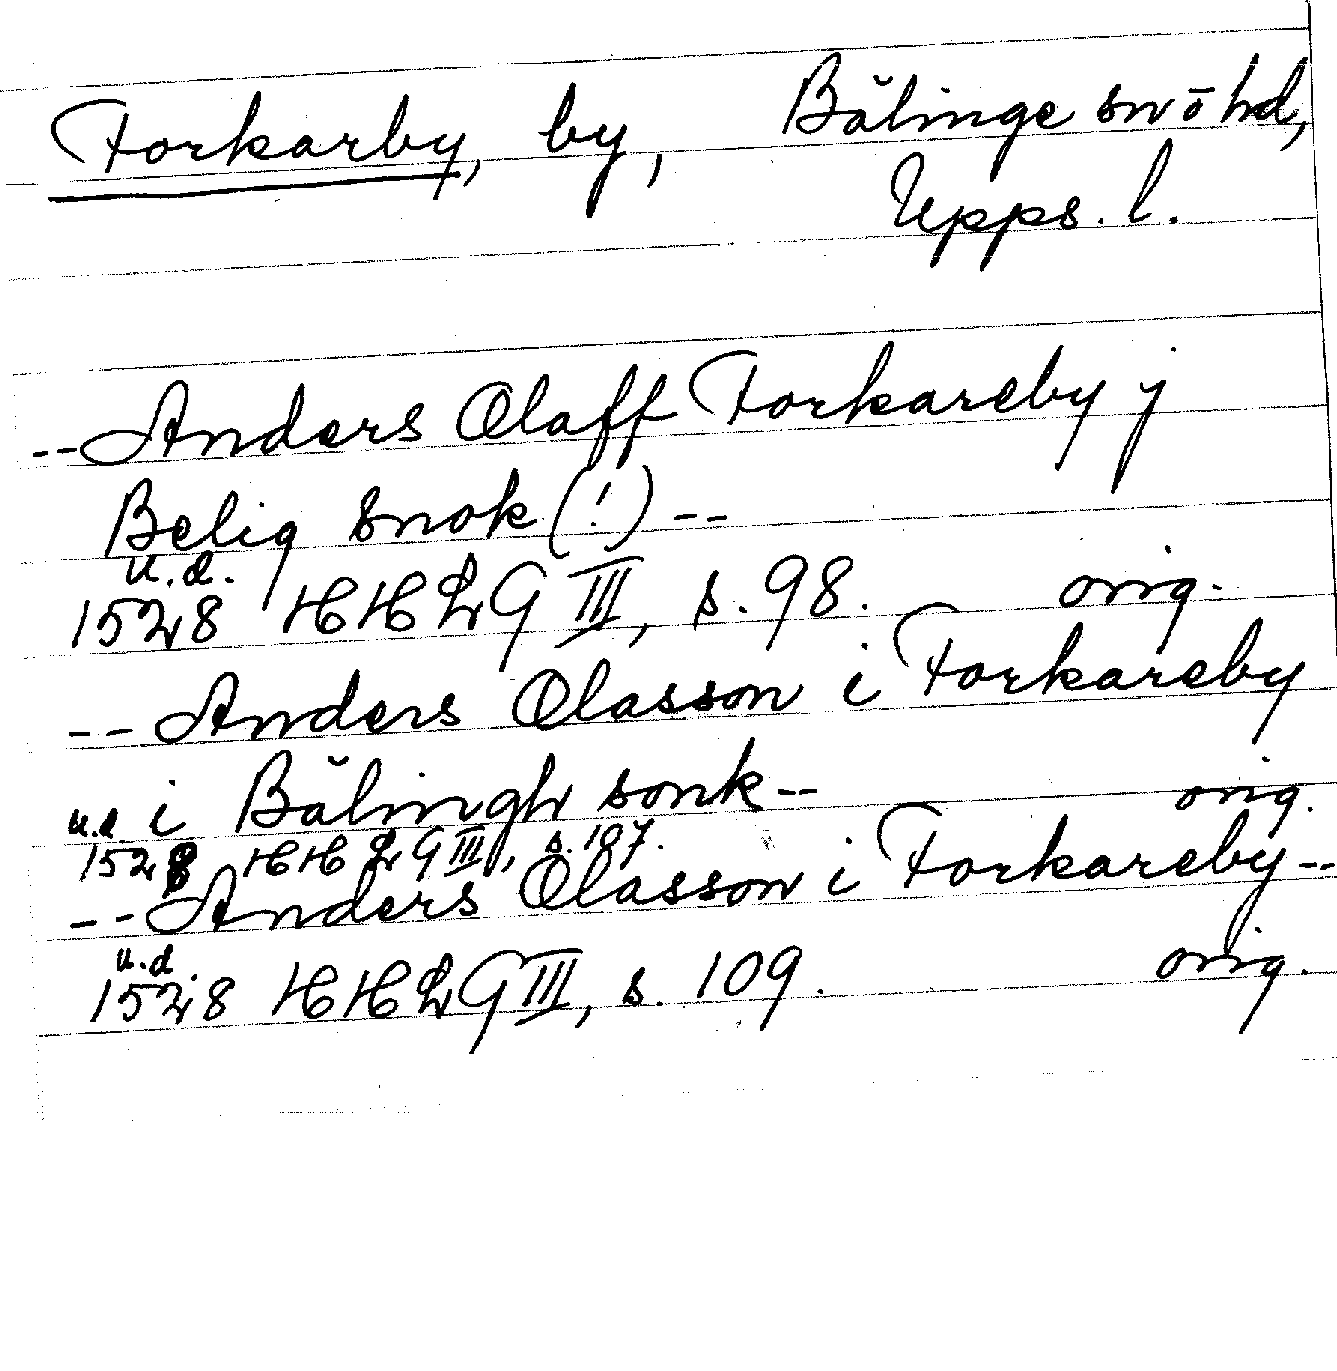 Forkarby, by, Bälinge sn o hd,
Upps. l.
-- Anders Olaff Forkareby j
Belig snok (!) --
u.d.
1528 HHLG III, s. 98. orig.
-- Anders Olasson i Forkareby
i Bälingh sonk --
u.d
1528 HHLG III, s. 107. orig.
-- Anders Olasson i Forkareby --
u.d.
1528 HHLG III, s. 109. orig.